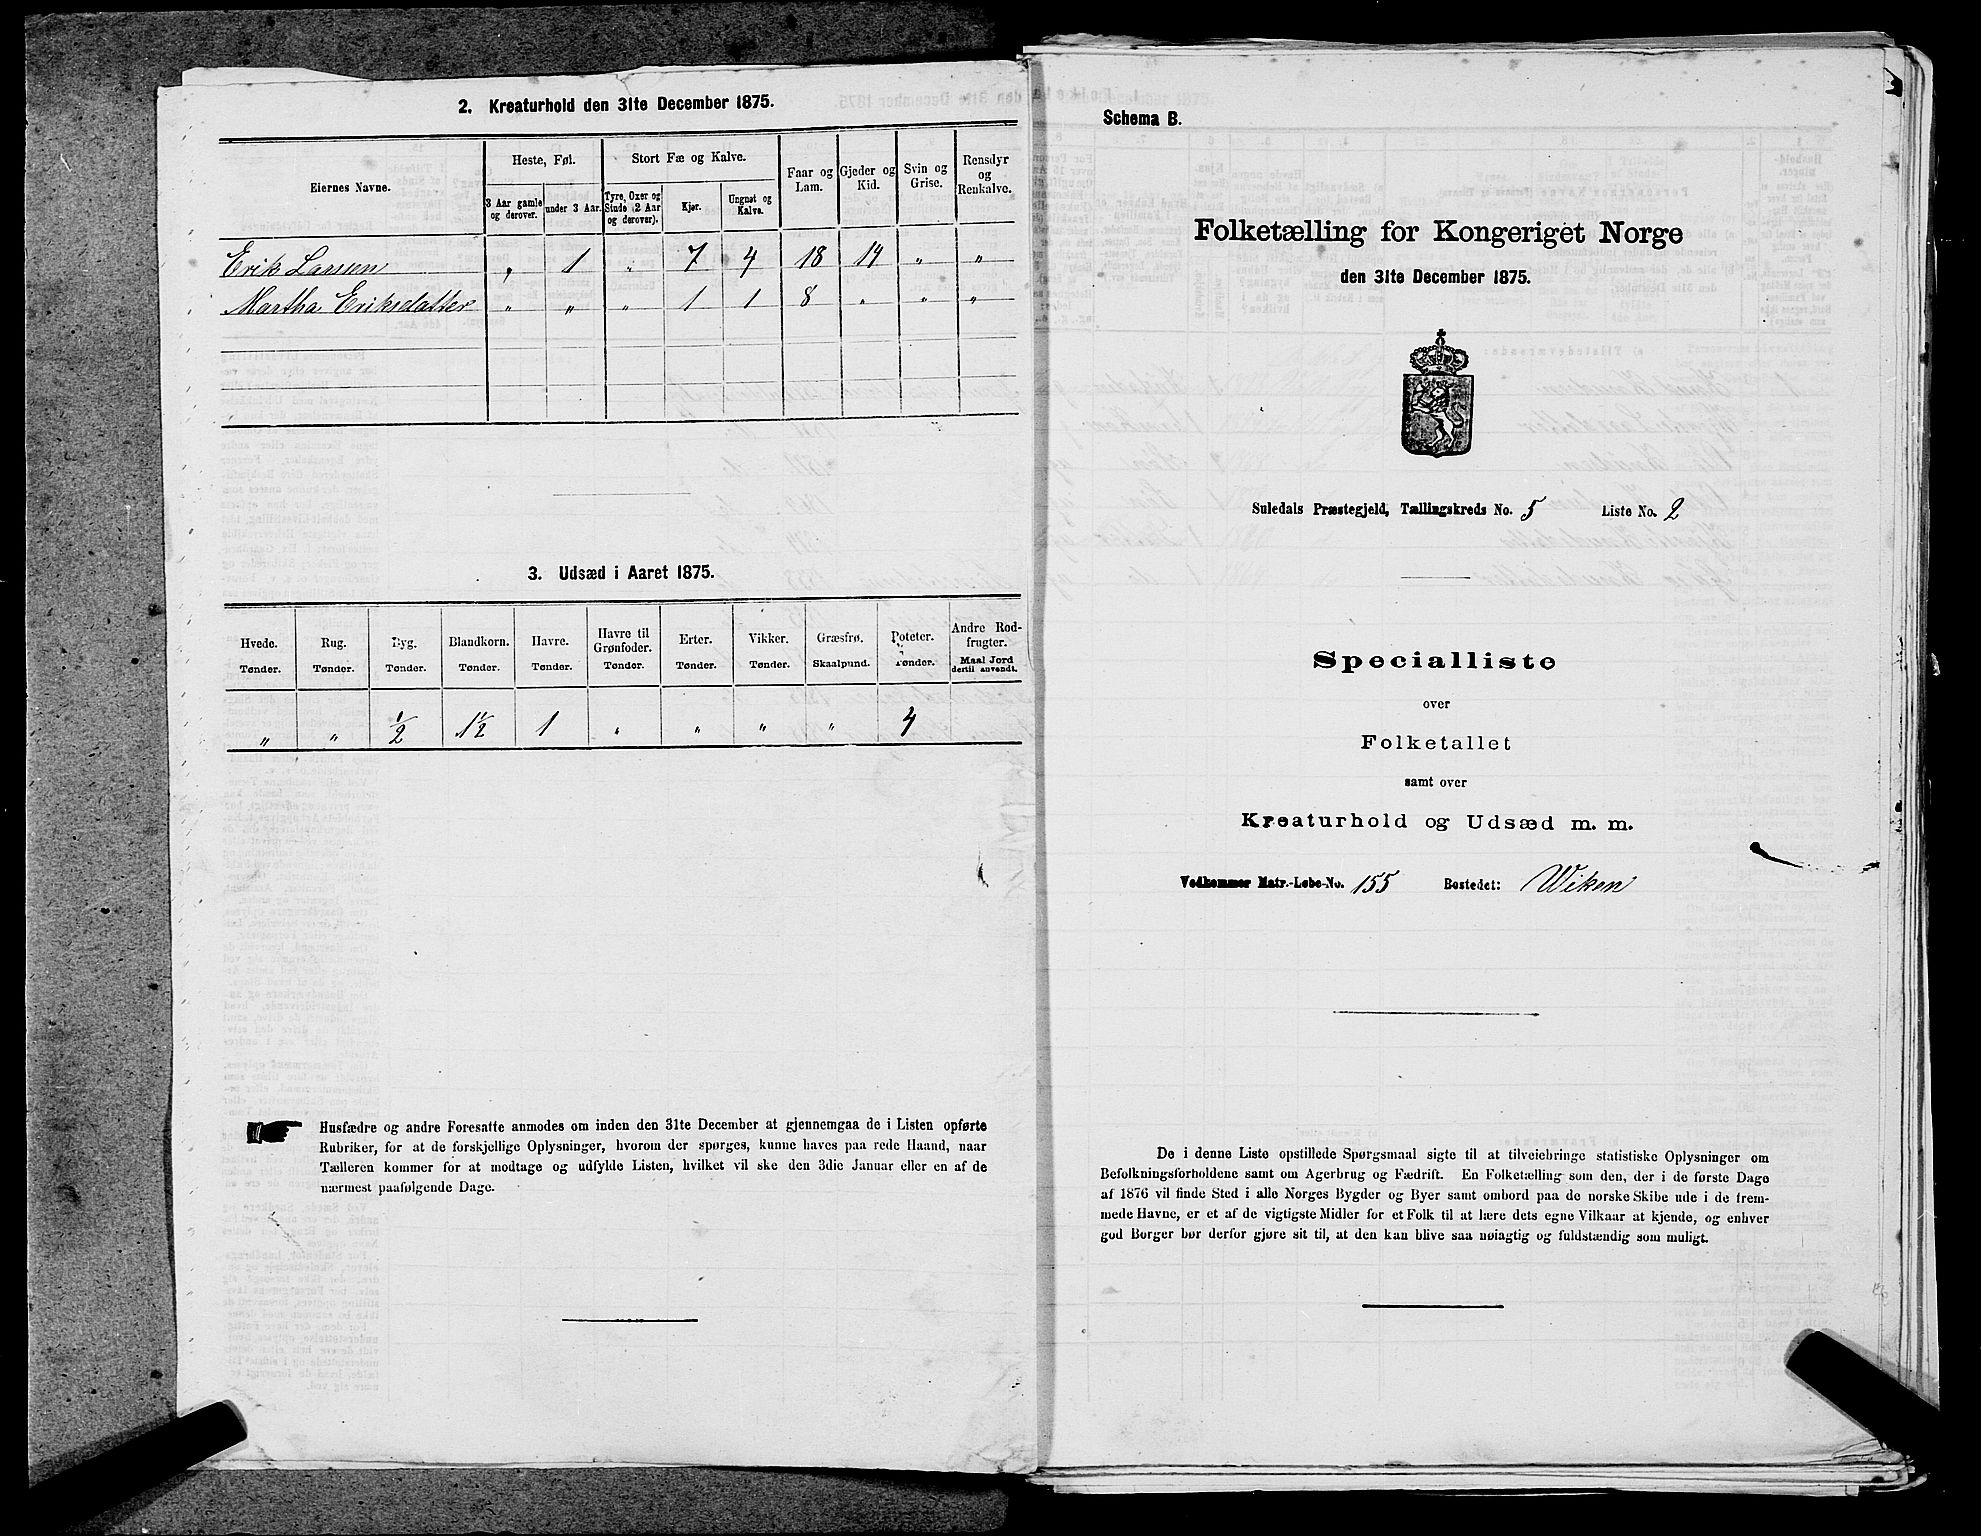 2. Kreaturhold den 31te December 1875.
Eiernes Navne.
Heste, Føl.
Stort Fæ og Kalve.
Faar og Lam.
Gjeder og Kid.
Svin og Grise.
Rensdyr og Renkalve.
3 Aar gamle og derover.
under 3 Aar.
Tyre, Oxer og Stude (2 Aar og derover).
Kjør.
Ungnøt og Kalve.
Erik Larsen " 1 " 7 4 18 14 " "
Martha Eriksdatter " " " 1 1 8 " " "
3. Udsæd i Aaret 1875.
Hvede. Rug. Byg. Blandkorn. Havre. Havre til Grønfoder. Erter. Vikker. Græsfrø. Poteter. Andre Rodfrugter.
Tønder. Tønder. Tønder. Tønder. Tønder. Tønder. Tønder. Tønder. Skaalpund. Tønder. Maal Jord dertil anvendt.
" " 1/2 1 1/2 1 " " " " 4
Husfædre og andre Foresatte anmodes om inden den 31te December at gjennemgaa de i Listen opførte
Rubriker, for at de forskjellige Oplysninger, hvorom der spørges, kunne haves paa rede Haand, naar
Tælleren kommer for at modtage og udfylde Listen, hvilket vil ske den 3die Januar eller en af de
nærmest paafølgende Dage.
Schema B.
Folketælling for Kongeriget Norge
den 31te December 1875.
Suledals Præstegjeld, Tællingskreds No. 5 Liste No. 2
Specialliste
over
Folketallet
samt over
Kreaturhold og Udsæd m. m.
Vedkommer Matr.-Løbe-No. 155 Bostedet: Wiken
De i denne Liste opstillede Spørgsmaal sigte til at tilveiebringe statistiske Oplysninger om
Befolkningsforholdene samt om Agerbrug og Fædrift. En Folketælling som den, der i de første Dage
af 1876 vil finde Sted i alle Norges Bygder og Byer samt ombord paa de norske Skibe ude i de frem-
mede Havne, er et af de vigtigste Midler for et Folk til at lære dets egne Vilkaar at kjende, og enhver
god Borger bør derfor gjøre sit til, at den kan blive saa nøiagtig og fuldstændig som muligt.